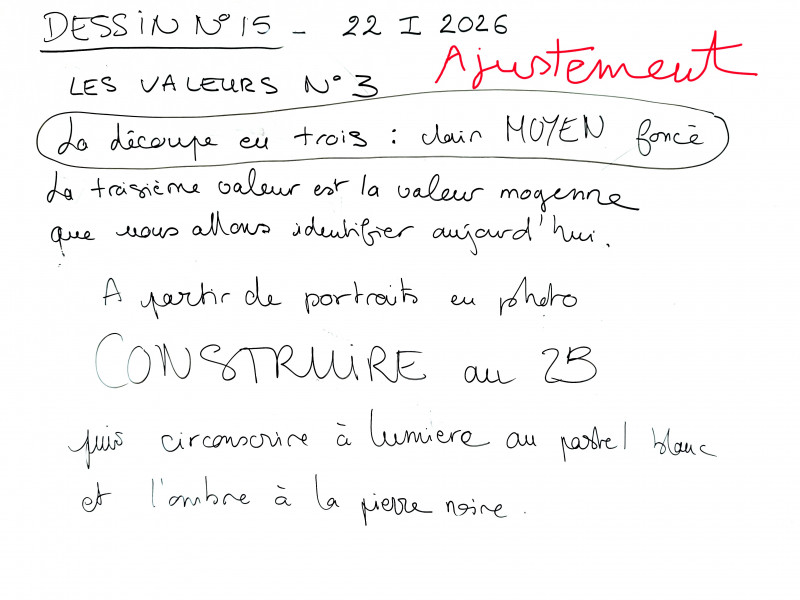 DESSIN N°15 - 22 I 2026
Ajustement
LES VALEURS N°3
La découpe en trois : clair MOYEN foncé
La troisième valeur est la valeur moyenne
que nous allons identifier aujourd'hui.
A partir de portraits en photo
CONSTRUIRE au 2B
puis circonscrire à lumiere au pastel blanc
et l'ombre à la pierre noire.